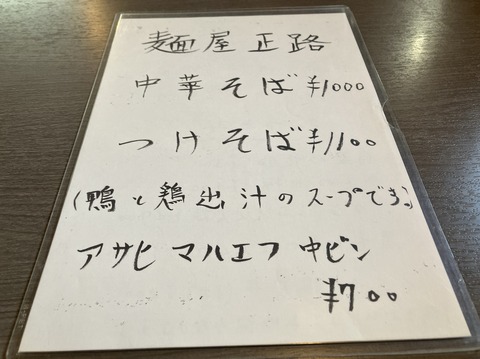 麺屋正路
中華そば ¥1000
つけそば ¥1100
(鴨と鶏出汁のスープです。)
アサヒ マルエフ 中ビン
¥700